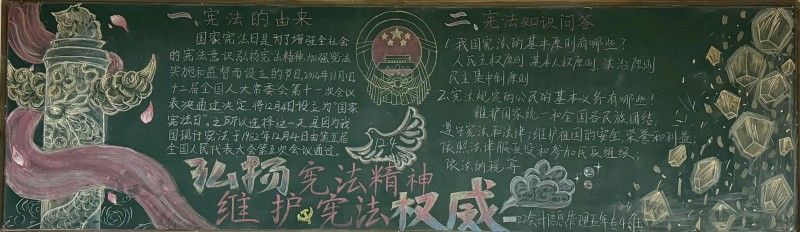 一、宪法的由来
国家宪法日是为了增强全社会
的宪法意识弘扬宪法精神加强宪法
实施和监督而设立的节日.2014年11月1日
十二届全国人大常委会第十一次会议
表决通过决定,将12月4日设立为"国家
宪法日",之所以选择这一天是因为我
国现行宪法于1982年12月4日由第五届
全国人民代表大会第五次会议通过。
二、宪法知识问答
1.我国宪法的基本原则有哪些?
人民主权原则 基本人权原则 法治原则
民主集中制原则
2.宪法规定的公民的基本义务有哪些!
维护国家统一和全国各民族团结,
遵守宪法和法律;维护祖国的安全荣誉和利益;
依照法律服兵役和参加民兵组织;
依法纳税等
12.4
弘扬宪法精神
维护宪法权威
会计信息管理五年专